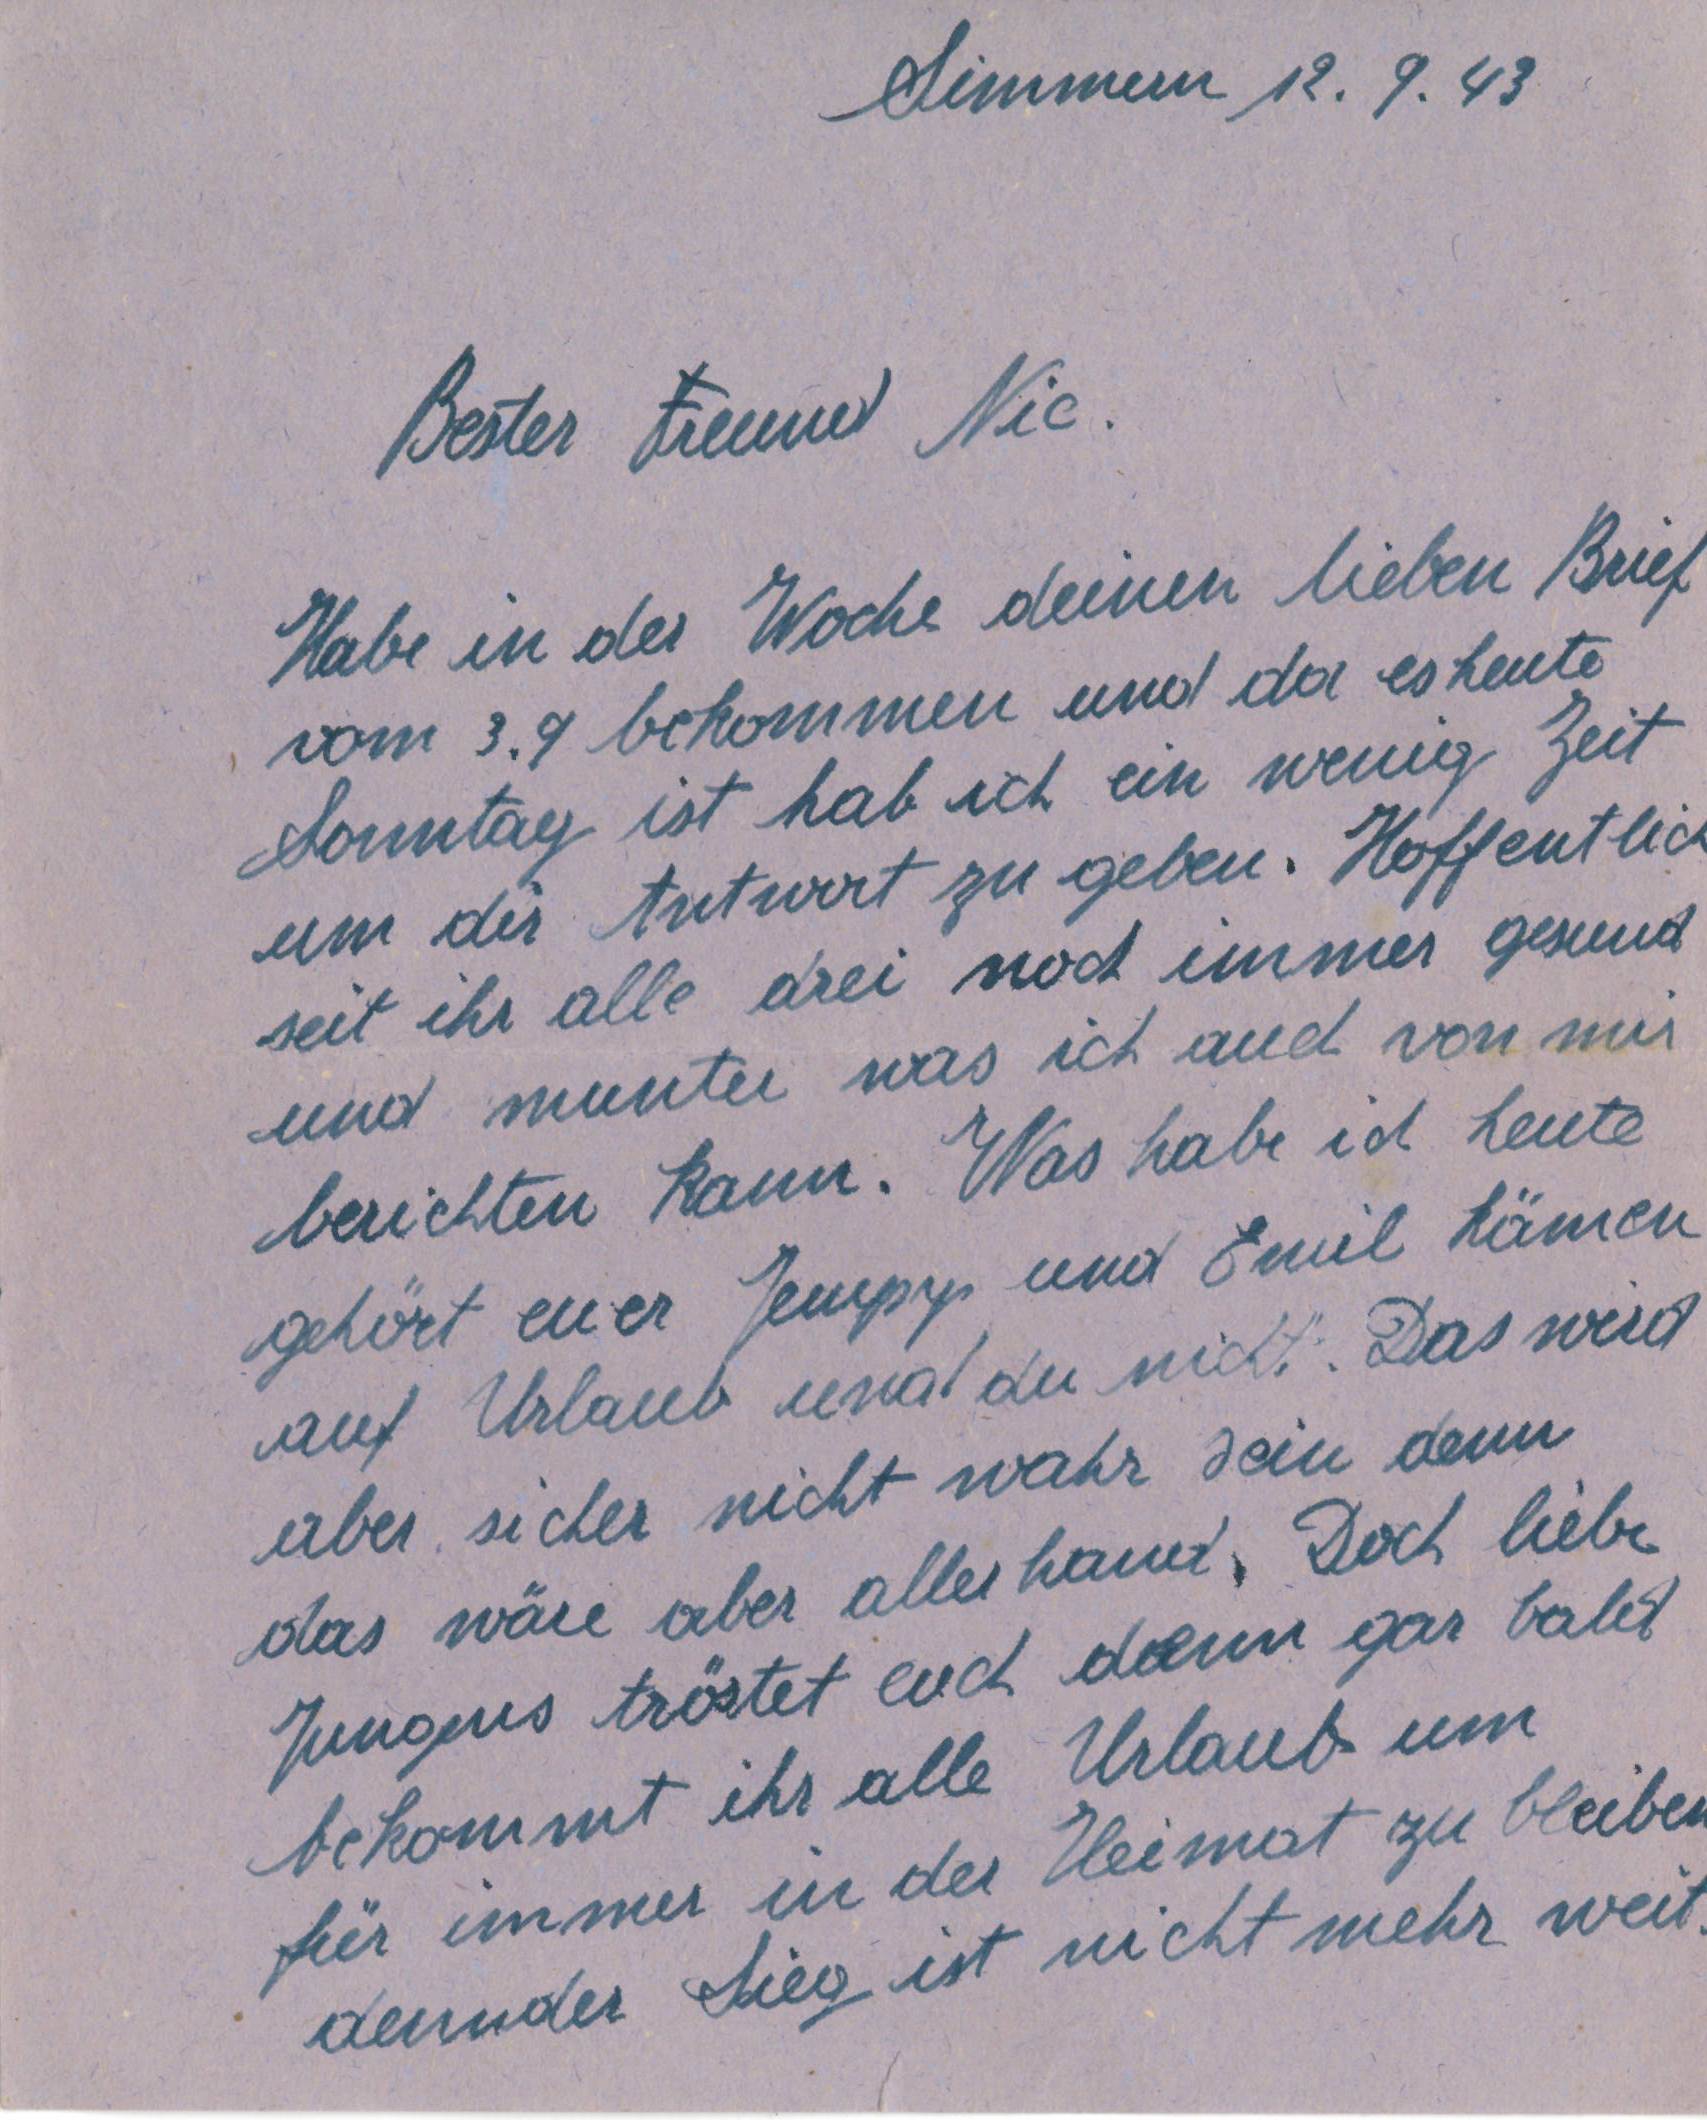 Simmern 12. 9. 43
Bester Freund Nic.
Habe in der Woche deinen lieben Brief
vom 3.9 bekommen und da es heute
Sonntag ist hab ich ein wenig Zeit
um dir Antwort zu geben. Hoffentlich
seit ihr alle drei noch immer gesund
und munter was ich auch von mir
berichten kann. Was habe ich heute
gehört euer Jempy und Emil kämen
auf Urlaub und du nicht. Das wird
aber sicher nicht wahr sein denn
das wäre aber allerhand. Doch liebe
Jungens tröstet euch denn gar bald
bekommt ihr alle Urlaub um
für immer in der Heimat zu bleiben
denn der Sieg ist nicht mehr weit.